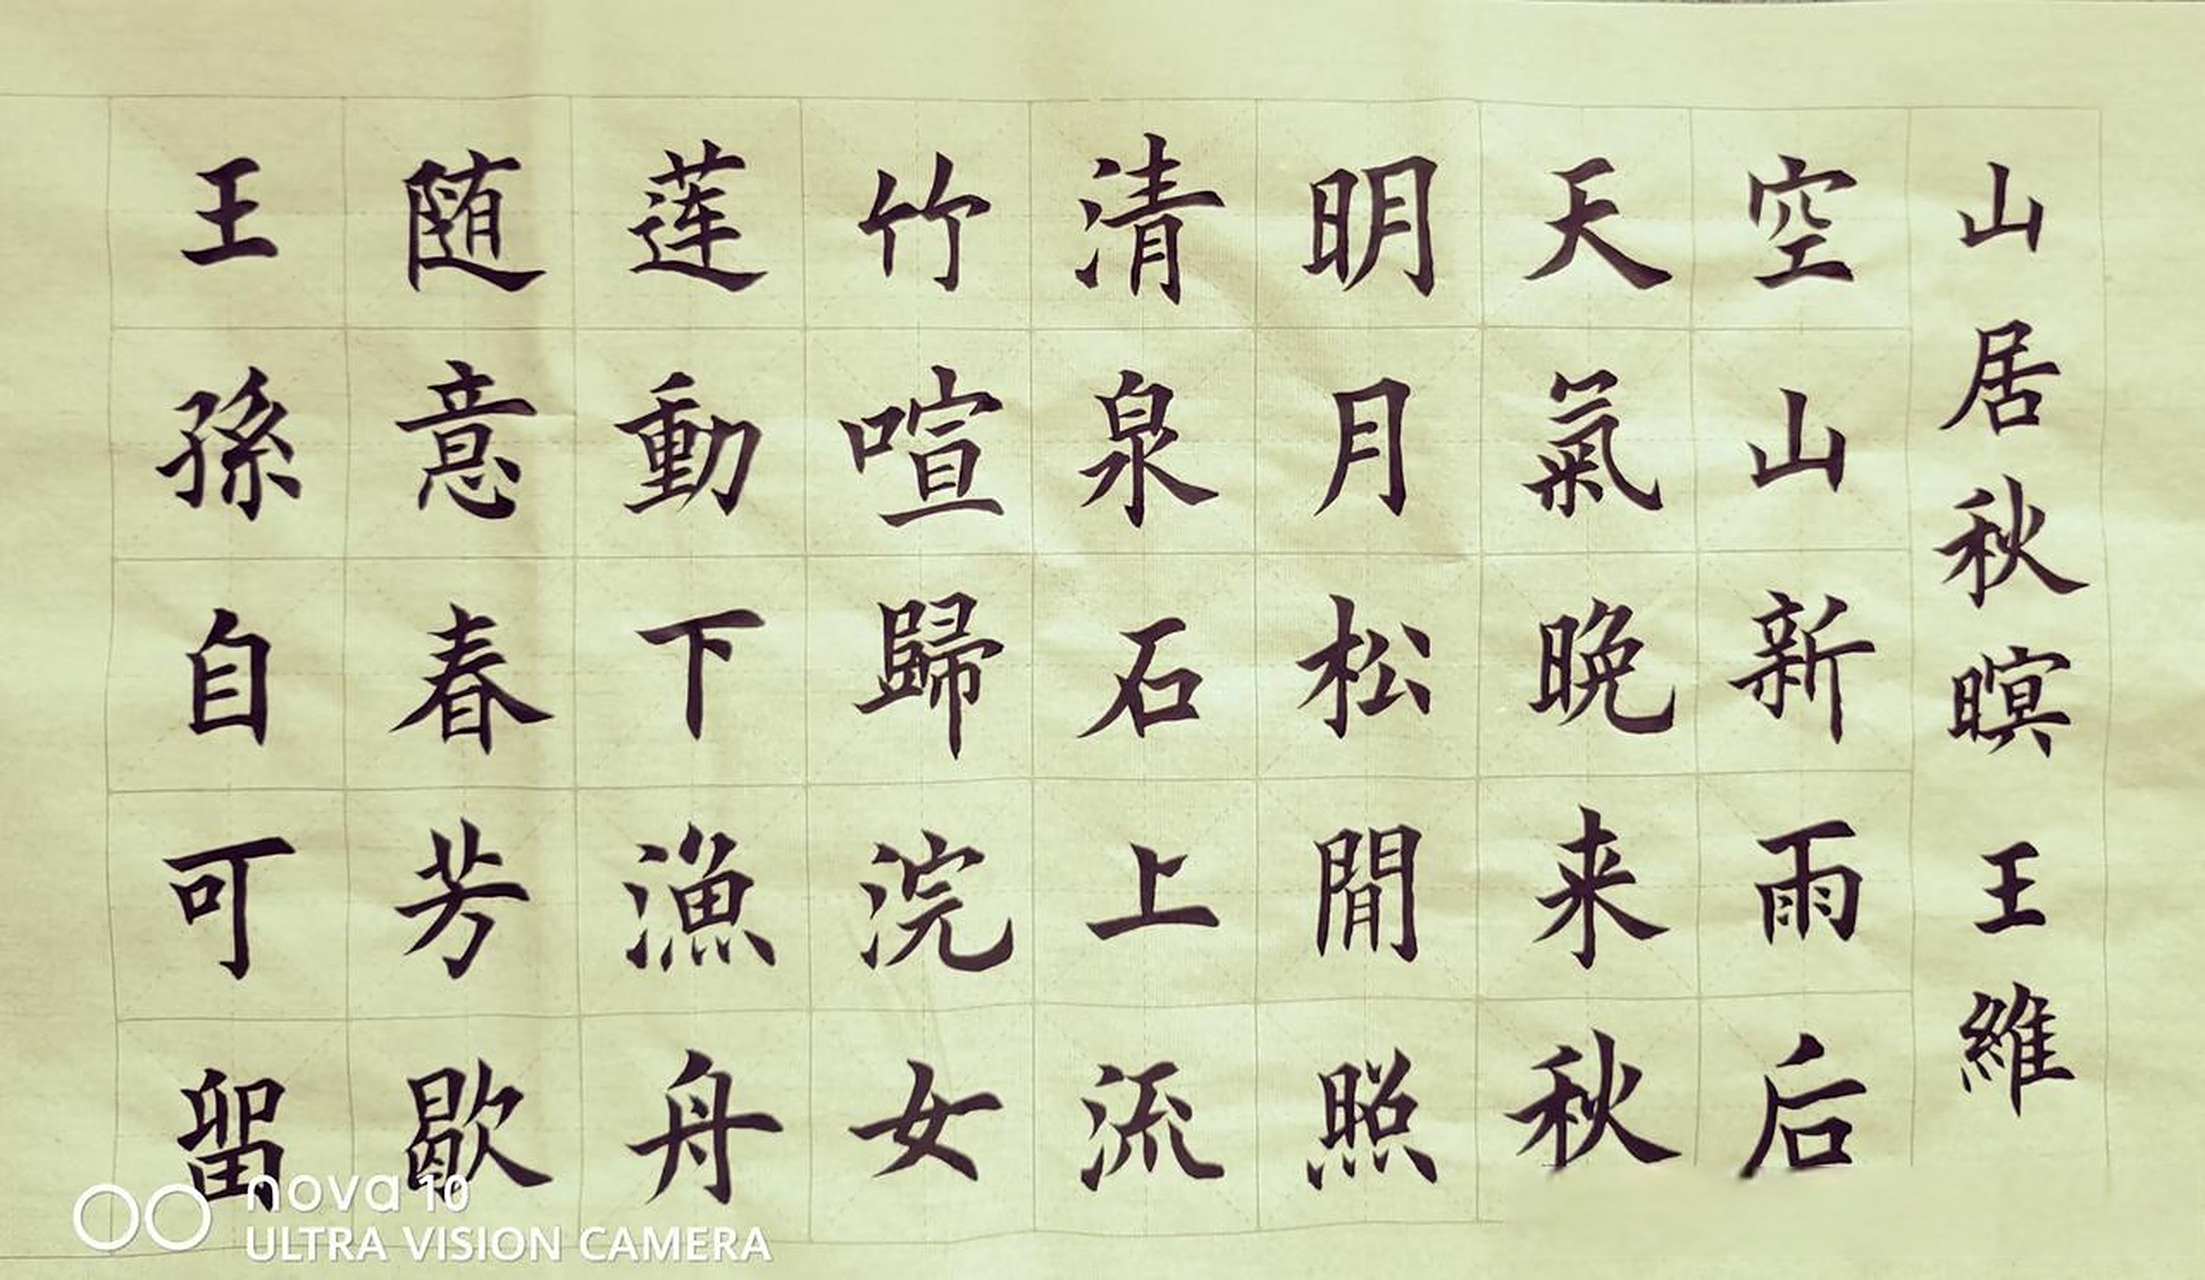 山居秋暝 王維
空山新雨后
天氣晚来秋
明月松間照
清泉石上流
竹喧歸浣女
莲動下漁舟
随意春芳歇
王孫自可留
nova 10
ULTRA VISION CAMERA